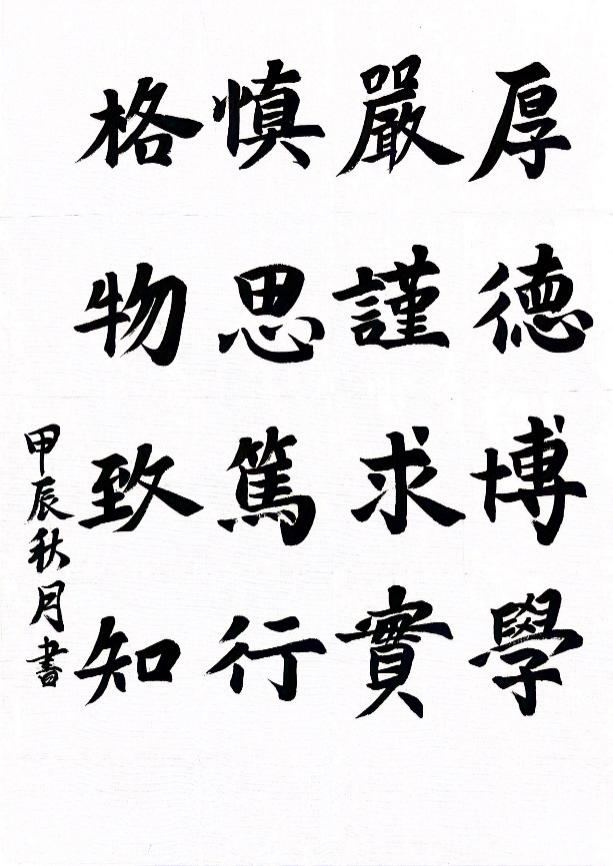 厚德博學
嚴謹求實
慎思篤行
格物致知
甲辰秋月書